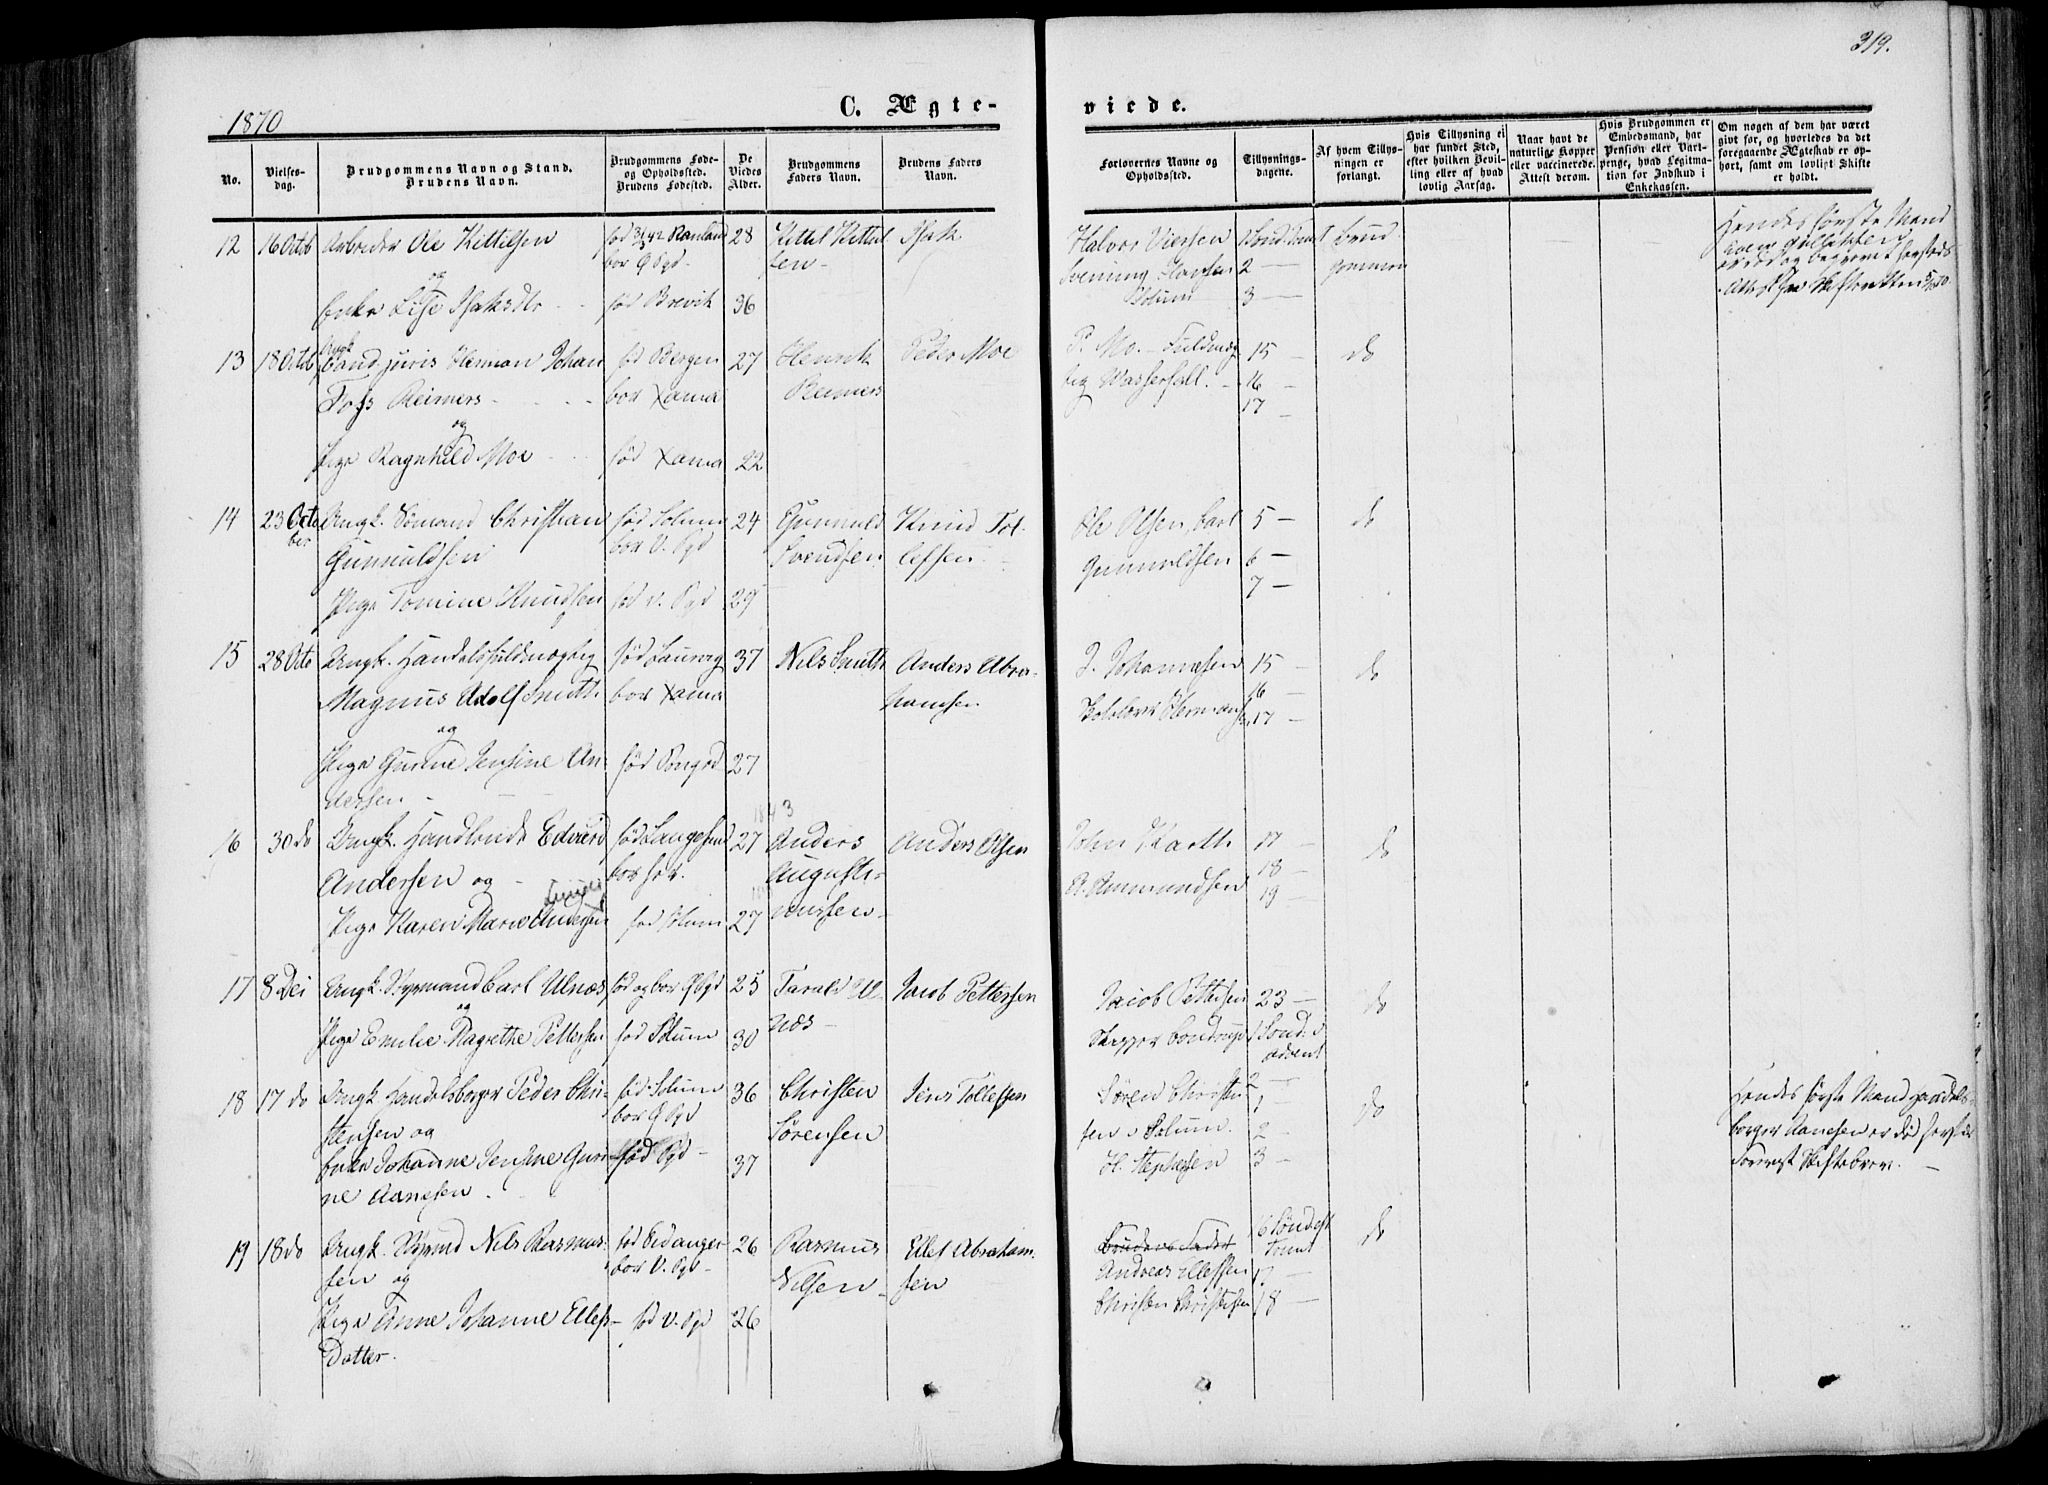 319.
1870
C. Ægte-
viede.
No.
Vielses-
dag.
Brudgommens Navn og Stand.
Brudens Navn.
Brudgommens Føde-
og Opholdssted.
Brudens Fødested.
De
Viedes
Alder.
Brudgommens
Faders Navn.
Brudens Faders
Navn.
Forlovernes Navne og
Opholdssted.
Tillysnings-
dagene.
Af hvem Tillys-
ningen er
forlangt.
Hvis Tillysning ei
har fundet Sted,
efter hvilken Bevil-
ling eller af hvad
lovlig Aarsag.
Naar havt de
naturlige Kopper
eller vaccinerede.
Attest derom.
Hvis Brudgommen er
Embedsmand, har
Pension eller Vart-
penge, hvad Legitima-
tion for Indskud i
Enkekassen.
Om nogen af dem har været
givt før, og hvorledes da det
foregaaende Ægteskab er op-
hørt, samt om lovligt Skifte
er holdt.
12
16 Octb
Arbeider Ole Kittilsen
og
Enke Lise Isaksdtr
fød 31/42 Rauland
bor Ø Pgd
fød Brevik
28
36
Kittil Kittil
sen
Isak
Halvor Viersen
Svening Hansen
Solum
1 Sønd. Trint
2 —
3 —
Brud
gommen
Hendes første Mand
er død og begravet
13
18 Octb
Ungk
Cand juris Herman Johan
Foss Reimers
og
Pige Ragnhild Moe
fød Bergen
bor Xania
fød Xania
27
22
Henrik
Reimers
Peder Moe
P. Mo. – Fuldmæg
tig Wasserfall.
15 —
16 —
17 —
do
14
23 Octo
ber
Ungk. Sömand Christian
Gunnuldsen
Pige Tomine Knudsen
fød Solum
bor V. Pgd
fød V. Pgd
24
29
Gunnuld
Svendsen
Knud Tol-
lefsen
Ole Olsen, Carl
Gunnuldsen
5 —
6 —
7 —
do
15
28 Octo
Ungk. Handelsfuldmægtig
Magnus Adolf Smith
og
Pige Gurine Jensine An-
dersen
fød Laurvig
bor Xania
fød Pgd
37
27
Nils Smith
Anders Abra-
hamsen
J. Johannesen
15 —
16 —
17 —
do
16
30 do
Ungk. Handlende Edvard
Andersen og
Pige Karen Marie Andersen
fød Langesund
bor her.
fød Solum
1843
27
27
Anders
Augusti-
nussen
Anders Olsen
John Kartt
R. Ammundsen
17 —
18 —
19 —
do
17
8 Dei
Ungk. Styrmand Carl Ulnæs
og
Pige Emilie Magrethe Pettersen
fød og bor Ø Pgd
fød Solum
25
30
Tarald Ul-
næs
Jacob Pettersen
Jacob Pettersen
23 —
1 Sønd. i
Advent
2 —
do
18
17 do
Ungk. Handelsborger Peder Chri-
stensen og
Enke Johanne Jensine Guri-
ne Aanesen
fød Solum
bor Ø Pgd
fød Pgd
36
37
Christen
Sørensen
Jens Tollefsen
Søren Christen
sen i Solum.
H. Stephansen
1 —
2 —
3 —
do
Hendes første Mand Handels-
borger Aanesen er død
Forevist Skiftebrev.
19
18 do
Ungk. Styrmd Nils Rasmus-
sen og
Pige Anne Johanne Ellefs-
Datter.
fød Eidanger
bor V. Pgd
fød V. Pgd
26
26
Rasmus
Nilsen
Ellef Abraham-
sen
Brudens Fader
Andreas Ellefsen
Christen Christensen
16 Sønd. eft
Trint
17 —
18 —
do